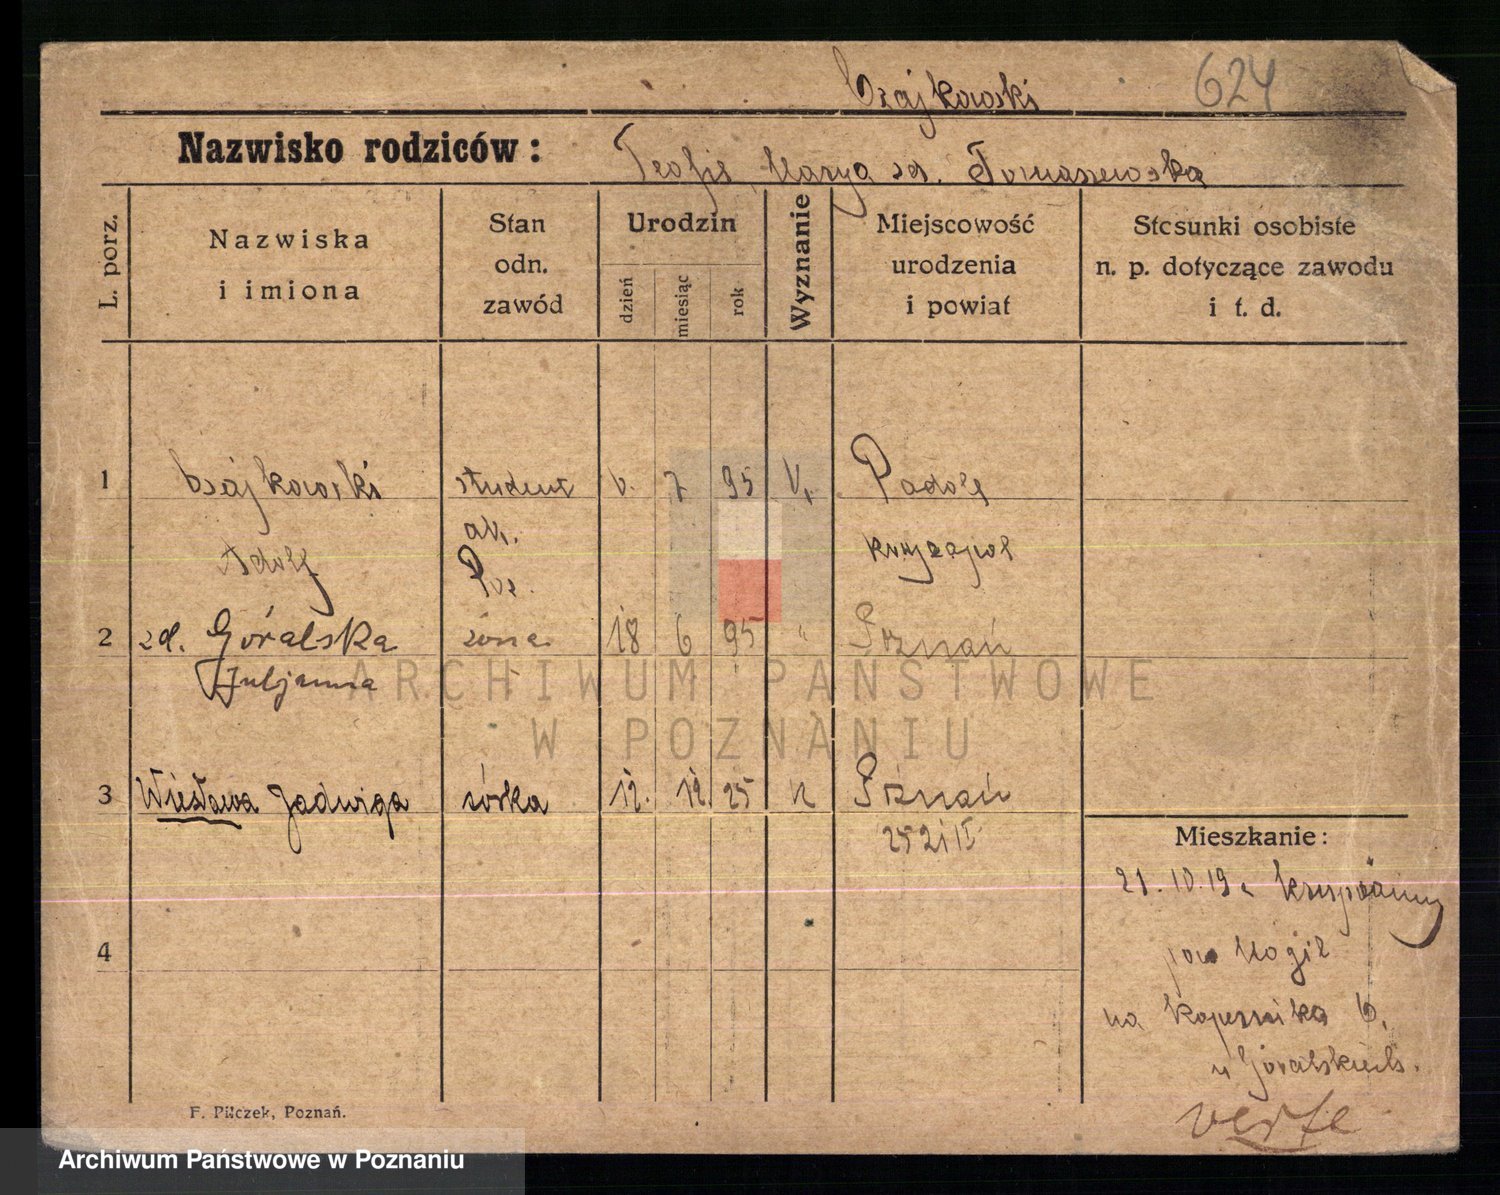 Czajkowski 624
Nazwisko rodziców: Teofil, Marya zd. Tomaszewska
L. porz.
Nazwiska
i imiona
Stan
odn.
zawód
Urodzin
dzień
miesiąc
rok
Wyznanie
Miejscowość
urodzenia
i powiat
Stosunki osobiste
n. p. dotyczące zawodu
i t. d.
1 Czajkowski student 6. 7 95 Podole
ak.
Adolf Poz.
2 zd. Góralska żona 18 6 95 " Poznań
Juljanna
ARCHIWUM PAŃSTWOWE
W POZNANIU
3 Wiesława Jadwiga córka 12. 12. 25 Poznań
Mieszkanie:
21.10.19
4
pow Mogil
na Kopernika 6,
u Góralskich.
verte
F. Pilczek, Poznań.
Archiwum Państwowe w Poznaniu